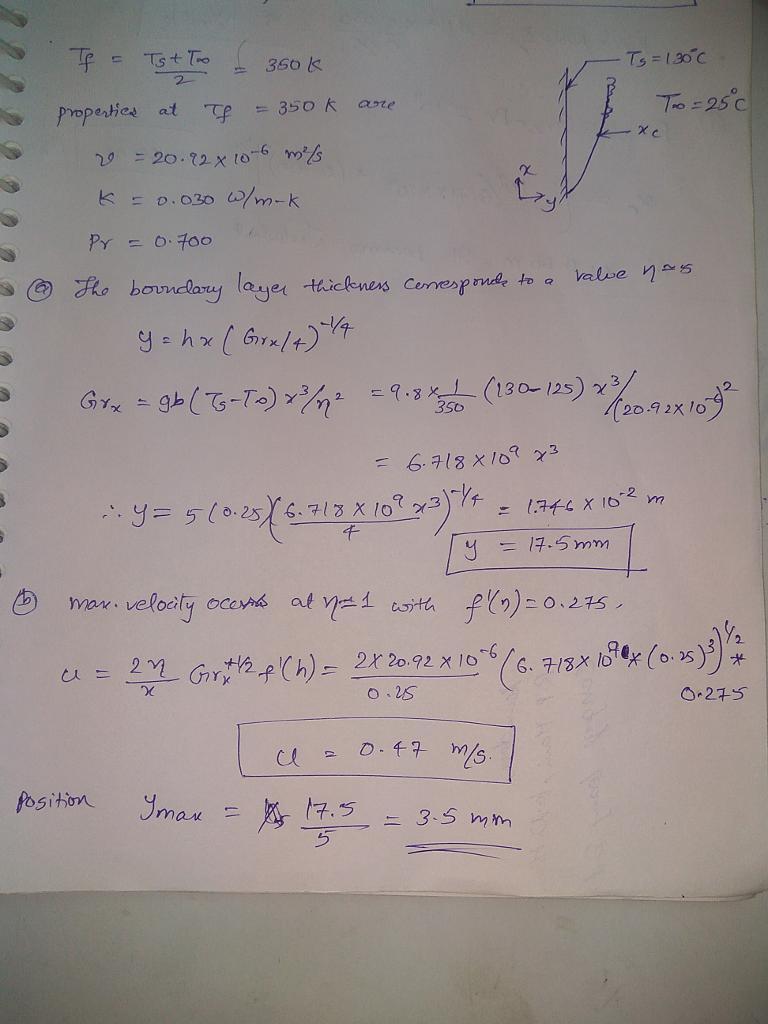 Tf = (Ts + T∞)/2 = 350 K
Ts = 130°C
T∞ = 25°C
xc
x
y
properties at Tf = 350 K are
ν = 20.92 × 10^-6 m²/s
K = 0.030 W/m-K
Pr = 0.700
(a) The boundary layer thickness corresponds to a value η≈5
y = hx (Grx/4)^-1/4
Grx = gb(Ts-T∞) x³/η² = 9.8 × 1/350 (130-125) x³/(20.92×10^-6)²
= 6.718 × 10^9 x³
∴ y = 5(0.25)(6.718 × 10^9 x³/4)^-1/4 = 1.746 × 10^-2 m
y = 17.5mm
(b) max. velocity occurs at η≈1 with f'(η)=0.275,
u = 2η/x Grx^+1/2 f'(h) = 2×20.92×10^-6/0.25 (6.718×10^9 × (0.25)³)^1/2 * 0.275
u = 0.47 m/s.
Position ymax = 17.5/5 = 3.5 mm